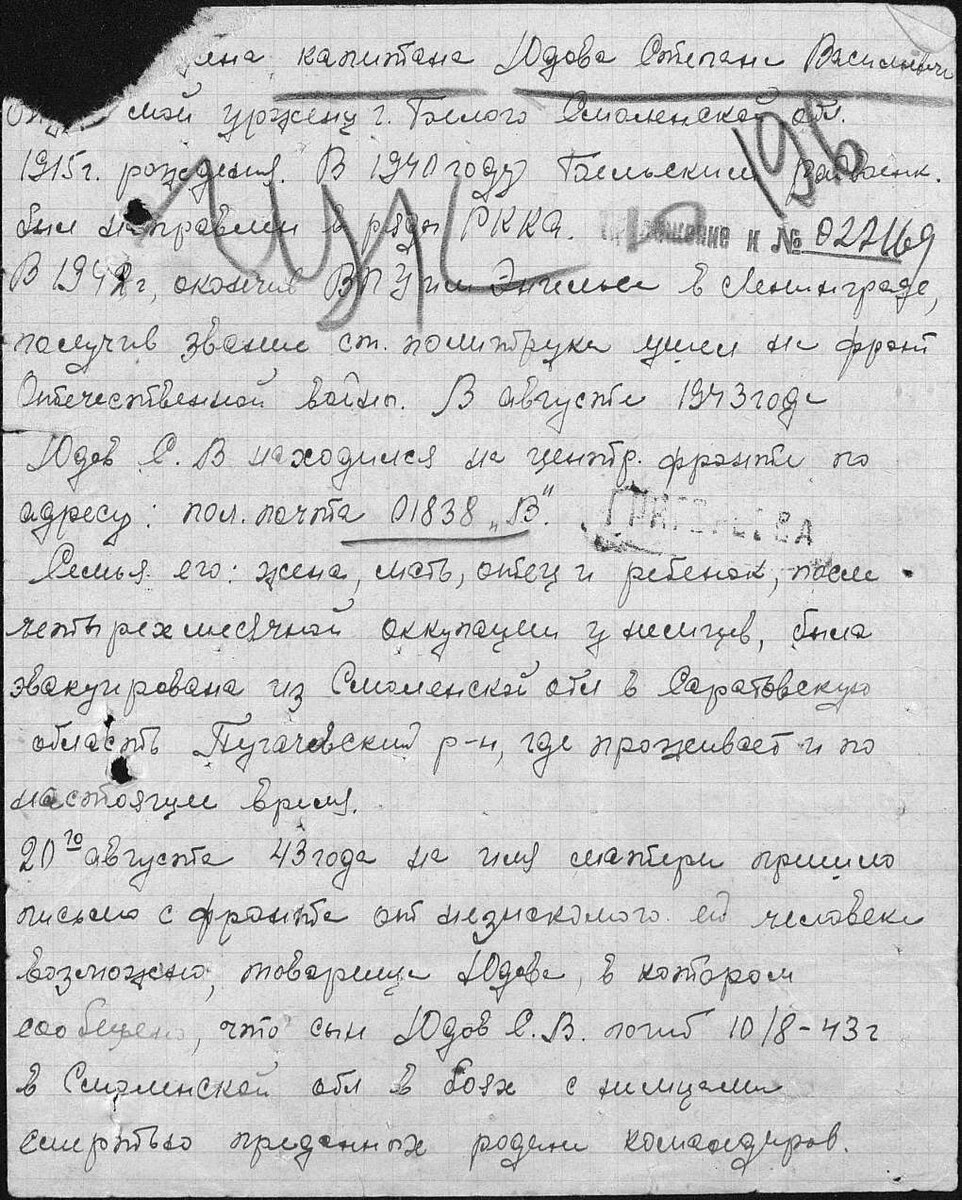 капитана Юдова Степана Василиевича
мой уроженец г. Белого Смоленской обл.
1915г. рождения. В 1940 году Бельским райвоенк.
был направлен в ряды РККА.
Приложение к № 022169
В 1942г, окончив ВПУ им Энгельса в Ленинграде,
получив звание ст. политрука ушел на фронт
Отечественной войны. В августе 1943 года
Юдов С. В находился на центр. фронте по
адресу: пол. почта 01838 „В".
Семья его: жена, мать, отец и ребенок, после
четырехмесячной оккупации у немцев, была
эвакуирована из Смоленской обл в Саратовскую
область Пугачевский р-н, где проживает и по
настоящее время.
20го августа 43 года на имя матери пришло
письмо с фронта от незнакомого ей человека
возможно, товарища Юдова, в котором
сообщено, что сын Юдов С. В. погиб 10/8-43г
в Смоленской обл в боях с немцами
смертью преданных родине командиров.